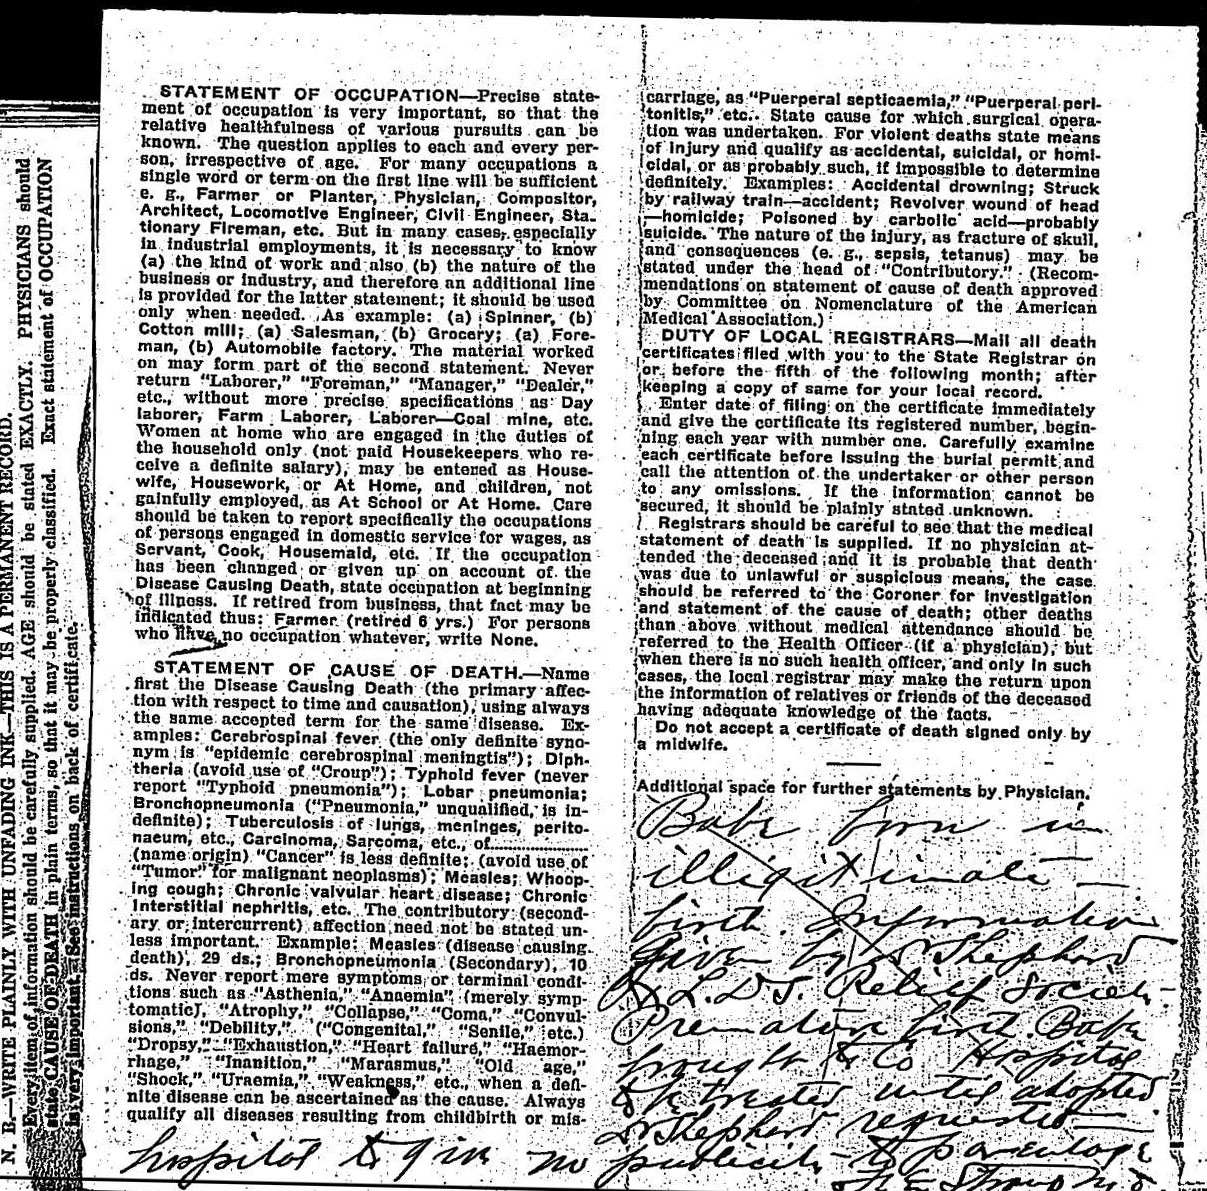 N. B.—WRITE PLAINLY WITH UNFADING INK—THIS IS A PERMANENT RECORD.
Every item of information should be carefully supplied. AGE should be stated EXACTLY. PHYSICIANS should
state CAUSE OF DEATH in plain terms, so that it may be properly classified. Exact statement of OCCUPATION
is very important. See instructions on back of certificate.
STATEMENT OF OCCUPATION—Precise state-
ment of occupation is very important, so that the
relative healthfulness of various pursuits can be
known. The question applies to each and every per-
son, irrespective of age. For many occupations a
single word or term on the first line will be sufficient
e. g., Farmer or Planter, Physician, Compositor,
Architect, Locomotive Engineer, Civil Engineer, Sta-
tionary Fireman, etc. But in many cases, especially
in industrial employments, it is necessary to know
(a) the kind of work and also (b) the nature of the
business or industry, and therefore an additional line
is provided for the latter statement; it should be used
only when needed. As example: (a) Spinner, (b)
Cotton mill; (a) Salesman, (b) Grocery; (a) Fore-
man, (b) Automobile factory. The material worked
on may form part of the second statement. Never
return "Laborer," "Foreman," "Manager," "Dealer,"
etc., without more precise specifications as Day
laborer, Farm Laborer, Laborer—Coal mine, etc.
Women at home who are engaged in the duties of
the household only (not paid Housekeepers who re-
ceive a definite salary), may be entered as House-
wife, Housework, or At Home, and children, not
gainfully employed, as At School or At Home. Care
should be taken to report specifically the occupations
of persons engaged in domestic service for wages, as
Servant, Cook, Housemaid, etc. If the occupation
has been changed or given up on account of the
Disease Causing Death, state occupation at beginning
of illness. If retired from business, that fact may be
indicated thus: Farmer (retired 6 yrs.) For persons
who have no occupation whatever, write None.
STATEMENT OF CAUSE OF DEATH.—Name
first the Disease Causing Death (the primary affec-
tion with respect to time and causation), using always
the same accepted term for the same disease. Ex-
amples: Cerebrospinal fever (the only definite syno-
nym is "epidemic cerebrospinal meningtis"); Diph-
theria (avoid use of "Croup"); Typhoid fever (never
report "Typhoid pneumonia"); Lobar pneumonia;
Bronchopneumonia ("Pneumonia," unqualified, is in-
definite); Tuberculosis of lungs, meninges, perito-
naeum, etc., Carcinoma, Sarcoma, etc., of....................
(name origin) "Cancer" is less definite; (avoid use of
"Tumor" for malignant neoplasms); Measles; Whoop-
ing cough; Chronic valvular heart disease; Chronic
Interstitial nephritis, etc. The contributory (second-
ary or intercurrent) affection need not be stated un-
less important. Example: Measles (disease causing
death), 29 ds.; Bronchopneumonia (Secondary), 10
ds. Never report mere symptoms or terminal condi-
tions such as "Asthenia," "Anaemia" (merely symp-
tomatic), "Atrophy," "Collapse," "Coma," "Convul-
sions," "Debility," ("Congenital," "Senile," etc.)
"Dropsy," "Exhaustion," "Heart failure," "Haemor-
rhage," "Inanition," "Marasmus," "Old age,"
"Shock," "Uraemia," "Weakness," etc., when a defi-
nite disease can be ascertained as the cause. Always
qualify all diseases resulting from childbirth or mis-
carriage, as "Puerperal septicaemia," "Puerperal peri-
tonitis," etc. State cause for which surgical opera-
tion was undertaken. For violent deaths state means
of injury and qualify as accidental, suicidal, or homi-
cidal, or as probably such, if impossible to determine
definitely. Examples: Accidental drowning; Struck
by railway train—accident; Revolver wound of head
—homicide; Poisoned by carbolic acid—probably
suicide. The nature of the injury, as fracture of skull,
and consequences (e. g., sepsis, tetanus) may be
stated under the head of "Contributory." (Recom-
mendations on statement of cause of death approved
by Committee on Nomenclature of the American
Medical Association.)
DUTY OF LOCAL REGISTRARS—Mail all death
certificates filed with you to the State Registrar on
or before the fifth of the following month; after
keeping a copy of same for your local record.
Enter date of filing on the certificate immediately
and give the certificate its registered number, begin-
ning each year with number one. Carefully examine
each certificate before issuing the burial permit and
call the attention of the undertaker or other person
to any omissions. If the information cannot be
secured, it should be plainly stated unknown.
Registrars should be careful to see that the medical
statement of death is supplied. If no physician at-
tended the deceased and it is probable that death
was due to unlawful or suspicious means, the case
should be referred to the Coroner for investigation
and statement of the cause of death; other deaths
than above without medical attendance should be
referred to the Health Officer (if a physician), but
when there is no such health officer, and only in such
cases, the local registrar may make the return upon
the information of relatives or friends of the deceased
having adequate knowledge of the facts.
Do not accept a certificate of death signed only by
a midwife.
Additional space for further statements by Physician.
Babe born in
illigitimate —
birth. Information
given by Dr Shepherd
& L.D.S. Relief Society.
Premature birth. Babe
brought to Co Hospital
to be treated until adopted.
Dr Shepherd requested
hospital to give no publicity to parentage